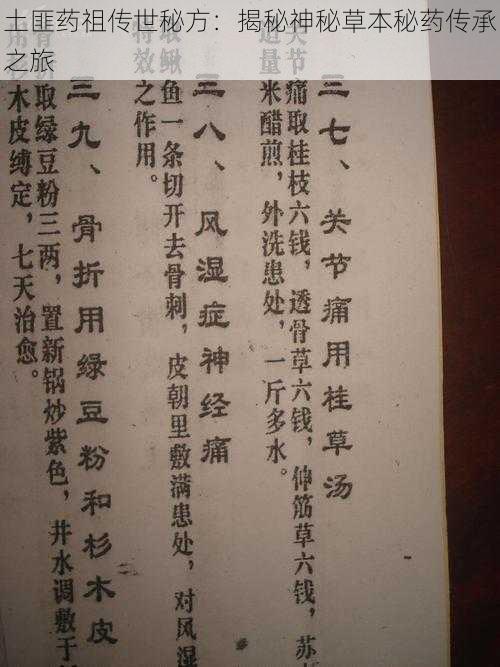 土匪药祖传世秘方：揭秘神秘草本秘药传承
之旅
三七、关节痛用桂草汤
关节痛取桂枝六钱，透骨草六钱，伸筋草六钱，苏木
米醋煎，外洗患处，一斤多水。
三八、风湿症神经痛
取鳅鱼一条切开去骨刺，皮朝里敷满患处，对风湿
特效之作用。
三九、骨折用绿豆粉和杉木皮
取绿豆粉三两，置新锅炒紫色，井水调敷于
木皮缚定，七天治愈。